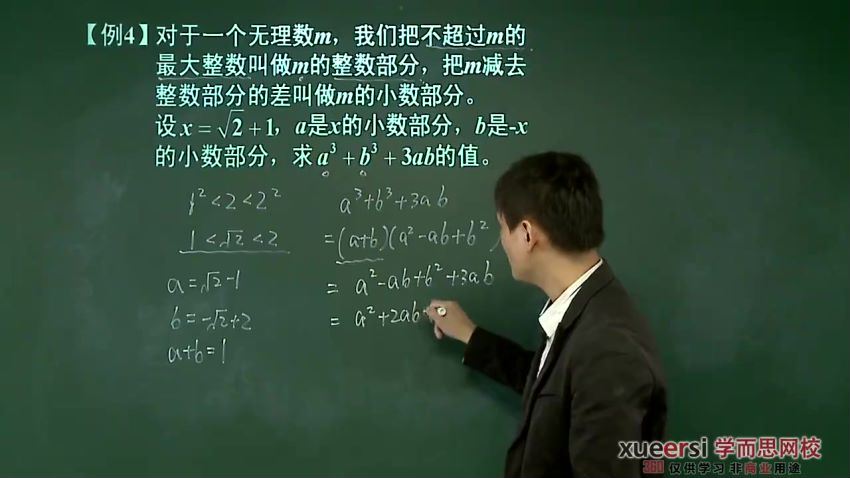 【例4】对于一个无理数m，我们把不超过m的
最大整数叫做m的整数部分，把m减去
整数部分的差叫做m的小数部分。
设x=√2+1，a是x的小数部分，b是-x
的小数部分，求a³+b³+3ab的值。
1²<2<2²
1<√2<2
a=√2-1
b=-√2+2
a+b=1
a³+b³+3ab
=(a+b)(a²-ab+b²
=a²-ab+b²+3ab
=a²+2ab
xueersi 学而思网校
360 仅供学习 非商业用途